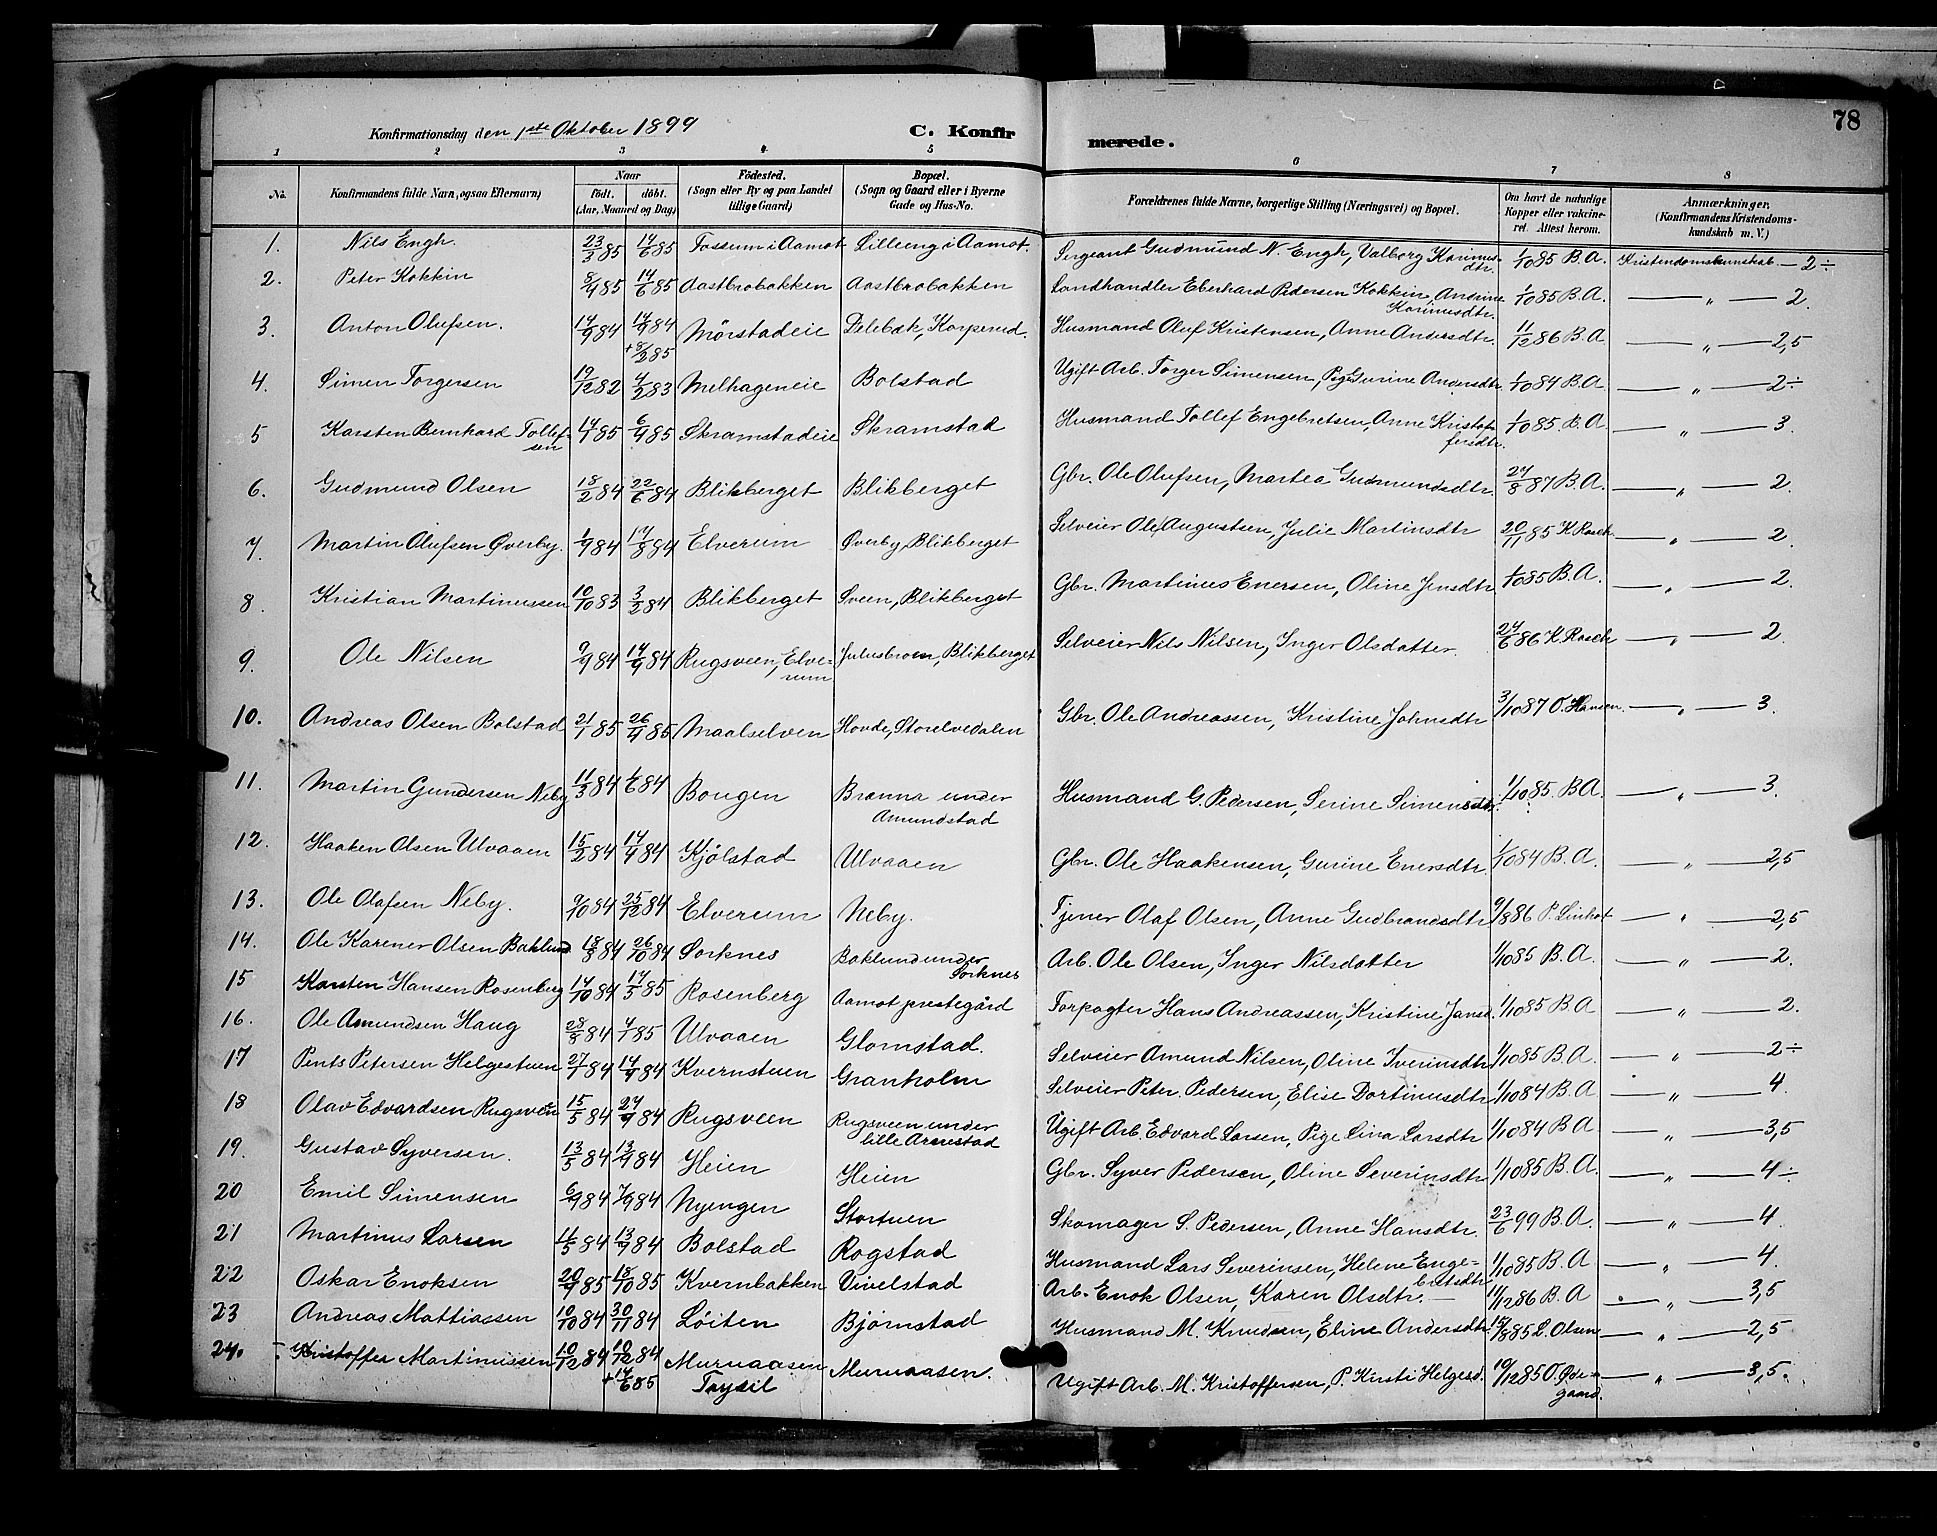 78
Konfirmationsdag den 1ste Oktober 1899 C. Konfirmerede.
1 2 3 4 5 6 7 8
No. Konfirmandens fulde Navn, ogsaa Efternavn) Naar født. døbt. (Aar, Maaned og Dag) Fødested. (Sogn eller By og paa Landet tillige Gaard) Bopæl. (Sogn og Gaard eller i Byerne Gade og Hus-No. Forældrenes fulde Navne, borgerlige Stilling (Næringsvei) og Bopæl. Om havt de naturlige Kopper eller vakcineret. Attest herom. Anmærkninger. (Konfirmandens Kristendomskundskab m. V.)
1. Nils Engh. 23/3 85 14/6 85 Fossum i Aamot Lilleeng i Aamot. Sergeant Gudmund N. Engh, Valborg Karinusdtr. 1/10 85 B.A. Kristendomskunskab — 2÷
2. Peter Kokkin 8/4 85 14/6 85 Aastbrobakken Aastbrobakken Landhandler Eberhard Pedersen Kokkin, Andrine Karinusdtr. 1/10 85 B.A. — " — 2.
3. Anton Olufsen. 14/9 84 14/9 84 + 8/2 85 Mørstadeie Delebæk, Korperud. Husmand Oluf Kristensen, Anne Andersdtr. 11/12 86 B.A. — " — 2,5
4. Simen Torgersen 19/12 82 4/2 83 Melhageneie Bolstad Ugift Arb. Torger Simensen, Pige Gurine Andersdtr. 1/10 84 B.A. — " — 2÷
5 Karsten Bernhard Tollefsen 14/1 85 6/4 85 Skramstadeie Skramstad Husmand Tollef Engebretsen, Anne Kristoffersdtr. 1/10 85. B.A. — " — 3.
6. Gudmund Olsen 18/2 84 22/6 84 Blikberget Blikberget Gbr. Ole Olufsen, Martea Gudmundsdtr. 27/8 87 B.A. — " — 2.
7. Martin Olufsen Øverby. 1/9 84 17/8 84 Elverum Øverby, Blikberget Selveier Ole Augustsen, Julie Martinsdtr 20/11 85 K Rasch — " — 2.
8. Kristian Martinussen 10/10 83 3/2 84 Blikberget Sveen, Blikberget Gbr. Martinus Enersen, Oline Jensdtr. 1/10 85 B.A. — " — 2.
9. Ole Nilsen 9/9 84 14/9 84 Rugsveen, Elverum Julusbroen, Blikberget Selveier Nils Nilsen, Inger Olsdatter. 24/6 86 K Rasch — " — 2.
10. Andreas Olsen Bolstad 21/1 85 26/4 85 Maalselven Hovde, Storelvedalen Gbr. Ole Andreassen, Kristine Johnsdtr 3/10 87 O. Hansen. — " — 3.
11. Martin Gundersen Neby 11/3 84 1/6 84 Bongen Brænna under Amundstad Husmand G. Pedersen, Serine Simensdtr. 1/10 85. BA. — " — 3.
12. Haaken Olsen Ulvaaen 15/2 84 14/4 84 Kjølstad Ulvaaen Gbr. Ole Haakensen, Gurine Enersdtr. 1/10 84 B.A. — " — 2,5
13. Ole Olafsen Neby. 9/10 84 25/12 84 Elverum Neby. Tjener Olaf Olsen, Anne Gudbrandsdtr 9/8 86 P. — " — 2,5
14. Ole Karener Olsen Baklund 18/8 84 26/10 84 Sorknes Baklund under Sorknes Arb. Ole Olsen, Inger Nilsdatter 1/10 85 B.A. — " — 2.
15 Karsten Hansen Rosenberg 14/10 84 17/5 85 Rosenberg Aamot prestegård Forpagter Hans Andreassen, Kristine Jansd. 1/10 85 B.A — " — 2.
16. Ole Amundsen Haug 28/8 84 4/1 85 Ulvaaen Glomstad. Selveier Amund Nilsen, Oline Iverinsdtr 1/10 85 B.A. — " — 2÷
17 Pents Petersen Helgestuen 27/1 84 14/4 84 Kvernstuen Granholm Selveier Peter Pedersen, Elise Dortinusdtr 1/10 84 B.A — " — 4.
18 Olav Edvardsen Rugsveen 15/5 84 27/9 84 Rugsveen Rugsveen under lille Arnestad Ugift Arb. Edvard Larsen, Pige Lina Larsdtr 1/10 84 B.A — " — 3,5
19. Gustav Syversen. 13/5 84 13/9 84 Heien Heien Gbr. Syver Pedersen, Oline Severinsdtr 1/10 85 B.A. — " — 4÷
20 Emil Simensen 6/9 84 7/9 84 Nyengen Stortuen Skomager S. Pedersen, Anne Hansdtr. 23/6 99 B.A. — " — 4.
21 Martinus Larsen 11/5 84 13/9 84 Bolstad Rogstad Husmand Lars Severinsen, Helene Engebretsdtr 1/10 85 B.A — " — 4.
22 Oskar Enoksen 20/9 85 18/10 85 Kvernbakken Vivelstad Arb. Enok Olsen, Karen Olsdtr. — 11/12 86 B.A — " — 3,5
23 Andreas Mattiassen 10/10 84 30/11 84 Løiten Bjørnstad Husmand M. Knudsen, Eline Andersdtr 15/8 85 L. Olsen — " — 2,5
24. Kristoffer Martinussen 10/12 84 10/12 84 + 14/6 85 Muruaasen Trysil Muruaasen. Ugift Arb. M. Kristoffersen, P. Kirsti Helgesd. 19/12 85 O. Ødegaard. — " — 3,5.